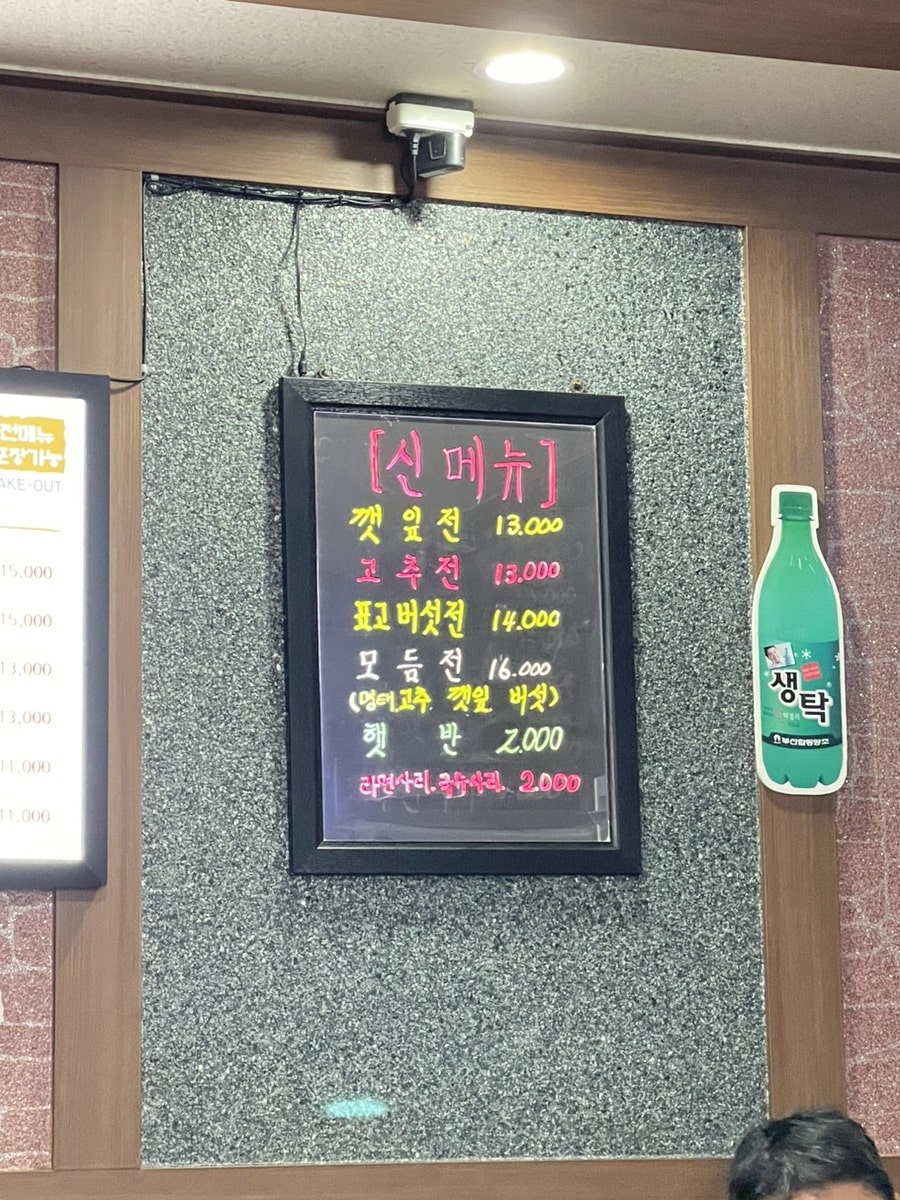 전메뉴
포장가능
AKE-OUT
15,000
15,000
13,000
13,000
11,000
11,000
[신메뉴]
깻잎전 13.000
고추전 13.000
표고버섯전 14.000
모듬전 16.000
(명태.고추. 깻잎 버섯)
햇반 2.000
라면사리.국수사리. 2.000
생탁
부산합동양조